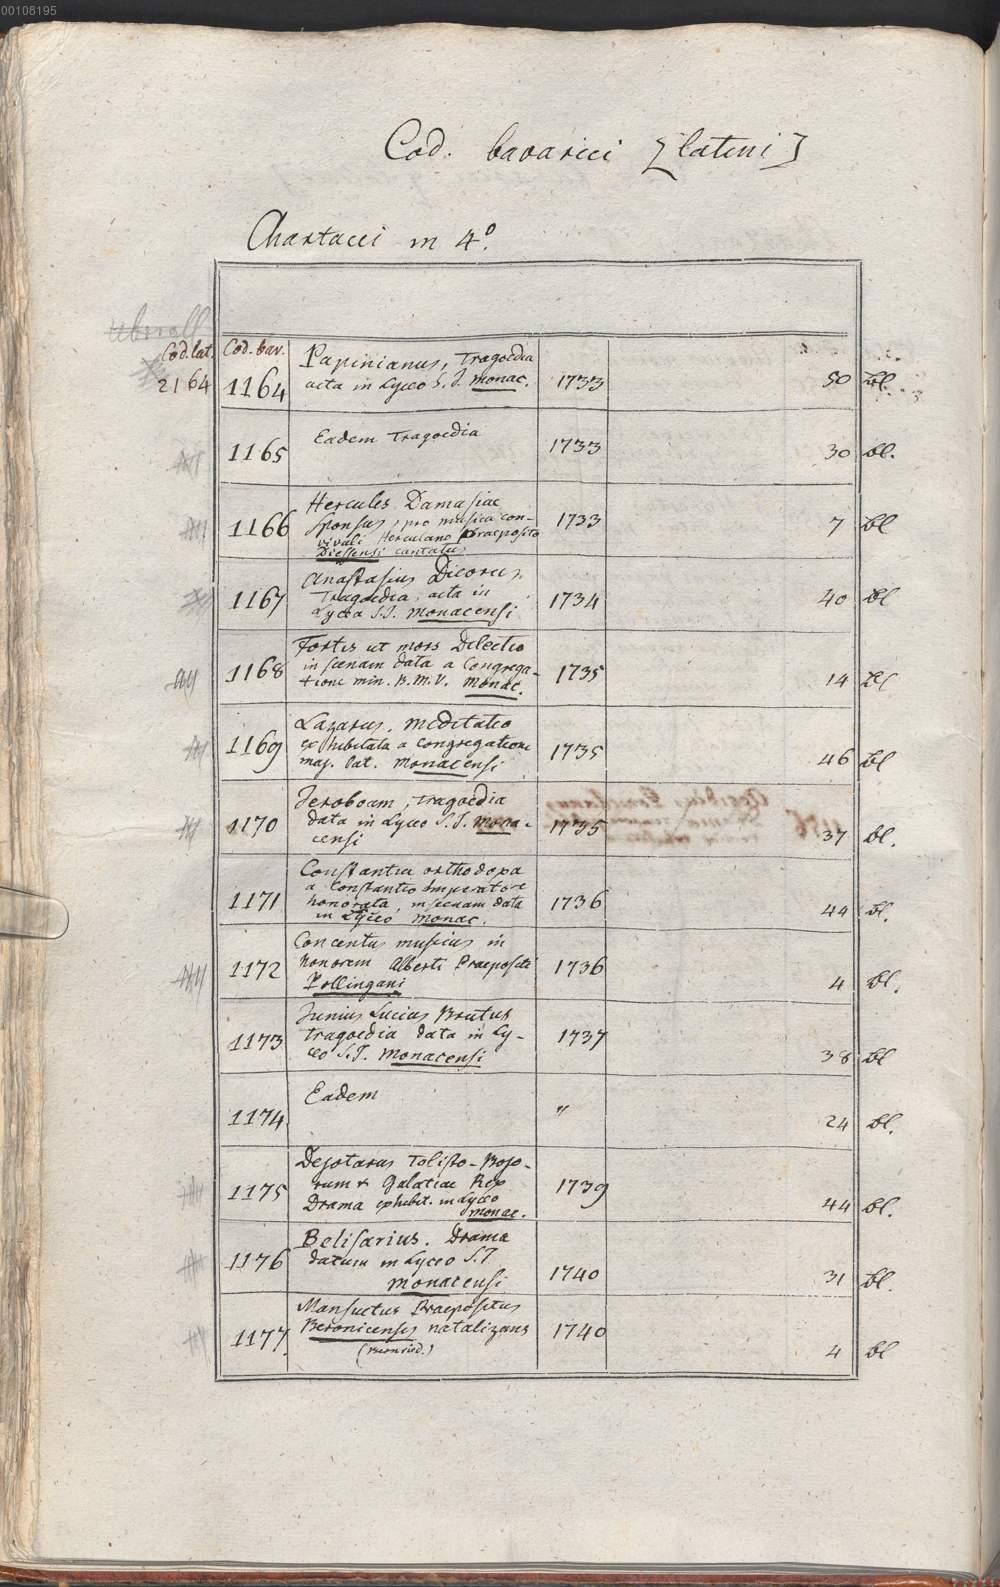 00108195
Cod. bavarici [latini]
Chartacei in 4º.
überall
Cod. lat. Cod. bav.
2164 1164 Papinianus, Tragoedia
acta in Lyceo S. J. monac. 1733 50 bl.
1165 Eadem Tragoedia 1733 30 bl.
1166 Hercules Damasiae
sponsus, pro musica con-
vivali Herculano Praeposito
Diessensi cantatus 1733 7 bl
1167 Anastasius Dicorus,
Tragoedia acta in
Lyceo S. J. monacensi 1734 40 bl
1168 Fortis ut mors Dilectio
in scenam data a Congrega-
tione min. B. M. V. monac. 1735 14 bl
1169 Lazarus, meditatio
exhibitata a congregatione
maj. lat. monacensi 1735 46 bl
1170 Jeroboam, tragoedia
data in Lyceo S. J. mona-
censi 1735 37 bl.
1171 Constantia orthodoxa
a Constantio Imperatore
honorata, in scenam data
in Lyceo monac. 1736 44 bl.
1172 Concentus musicus in
honorem Alberti Praepositi
Pollingani 1736 4 bl.
1173 Junius Lucius Brutus
tragoedia data in Ly-
ceo S. J. monacensi 1737 38 bl
1174 Eadem " 24 bl.
1175 Dejotarus Tolisto-Bojo-
rum & Galatiae Rex
Drama exhibit. in Lyceo
monac. 1739 44 bl.
1176 Belisarius. Drama
datum in Lyceo S. J
monacensi 1740 31 bl.
1177. Mansuetus Praepositus
Beronicensis natalizans
(Beuried.) 1740 4 bl